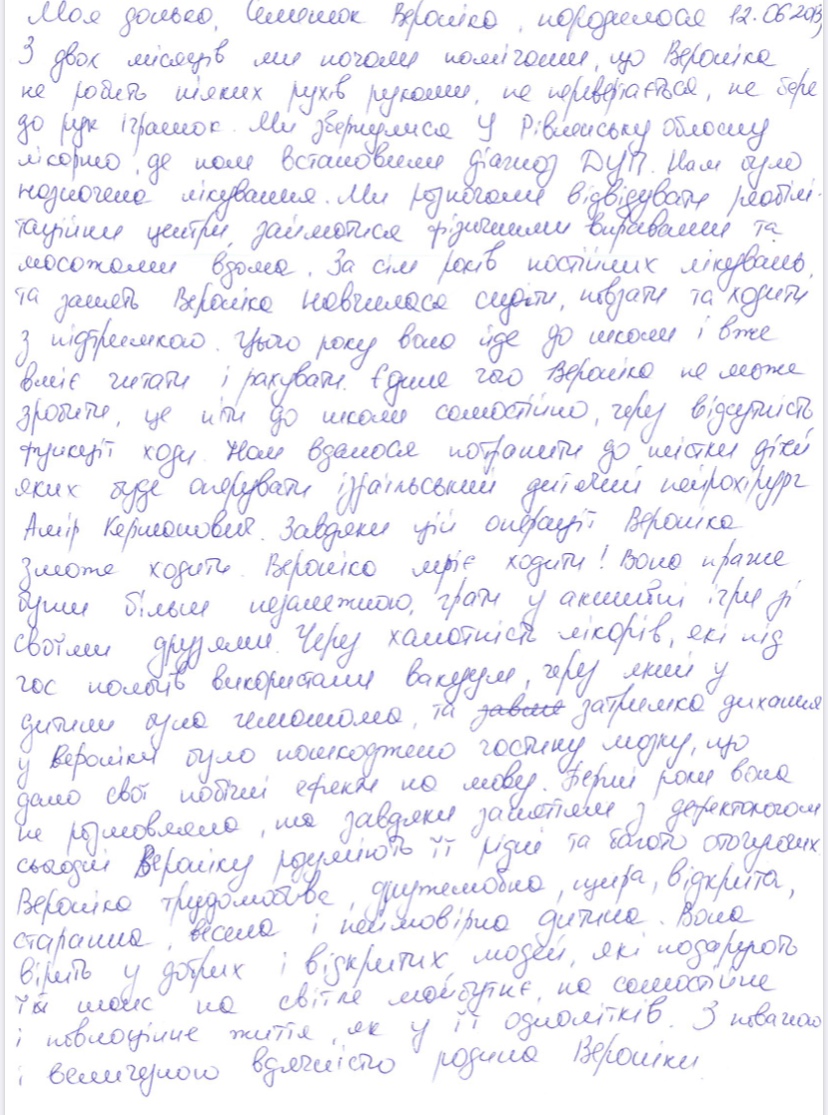 Моя донька, Семенюк Вероніка, народилася 12.06.2013
З двох місяців ми почали помічати, що Вероніка
не робить ніяких рухів руками, не перевертається, не бере
до рук іграшок. Ми звернулися у Рівненську обласну
лікарню, де нам встановили діагноз ДЦП. Нам було
назначено лікування. Ми розпочали відвідувати реабілі-
таційни центри, займатися фізичними вправами та
масажами вдома. За сім років постійних лікувань,
та занять Вероніка навчилася сидіти, повзати та ходити
з підтримкою. Цього року вона йде до школи і вже
вміє читати і рахувати. Єдине чого Вероніка не може
зробити, це йти до школи самостійно, через відсутність
функції ходи. Нам вдалося потрапити до шістки дітей
яких буде оперувати ізраїльський дитячий нейрохірург
Амір Кершонович. Завдяки цій операції Вероніка
зможе ходити. Вероніка мріє ходити! Вона прагне
бути більш незалежною, грати у активні ігри зі
своїми друзями. Через халатність лікарів, які під
час пологів використали вакуум, через який у
дитини була гематома, та затримка дихання
у Вероніки було пошкоджено частину мозку, що
дало свої побічні ефекти на мову. Перші роки вона
не розмовляла, та завдяки заняттям з дефектологом
сьогодні Вероніку розуміють її рідні та багато оточуючих.
Вероніка трудолюбива, дружелюбна, щира, відкрита,
старанна, весела і неймовірна дитина. Вона
вірить у добрих і відкритих людей, які подарують
їй шанс на світле майбутнє, на самостійне
і повноцінне життя, як у її однолітків. З повагою
і величезною вдячністю родина Вероніки